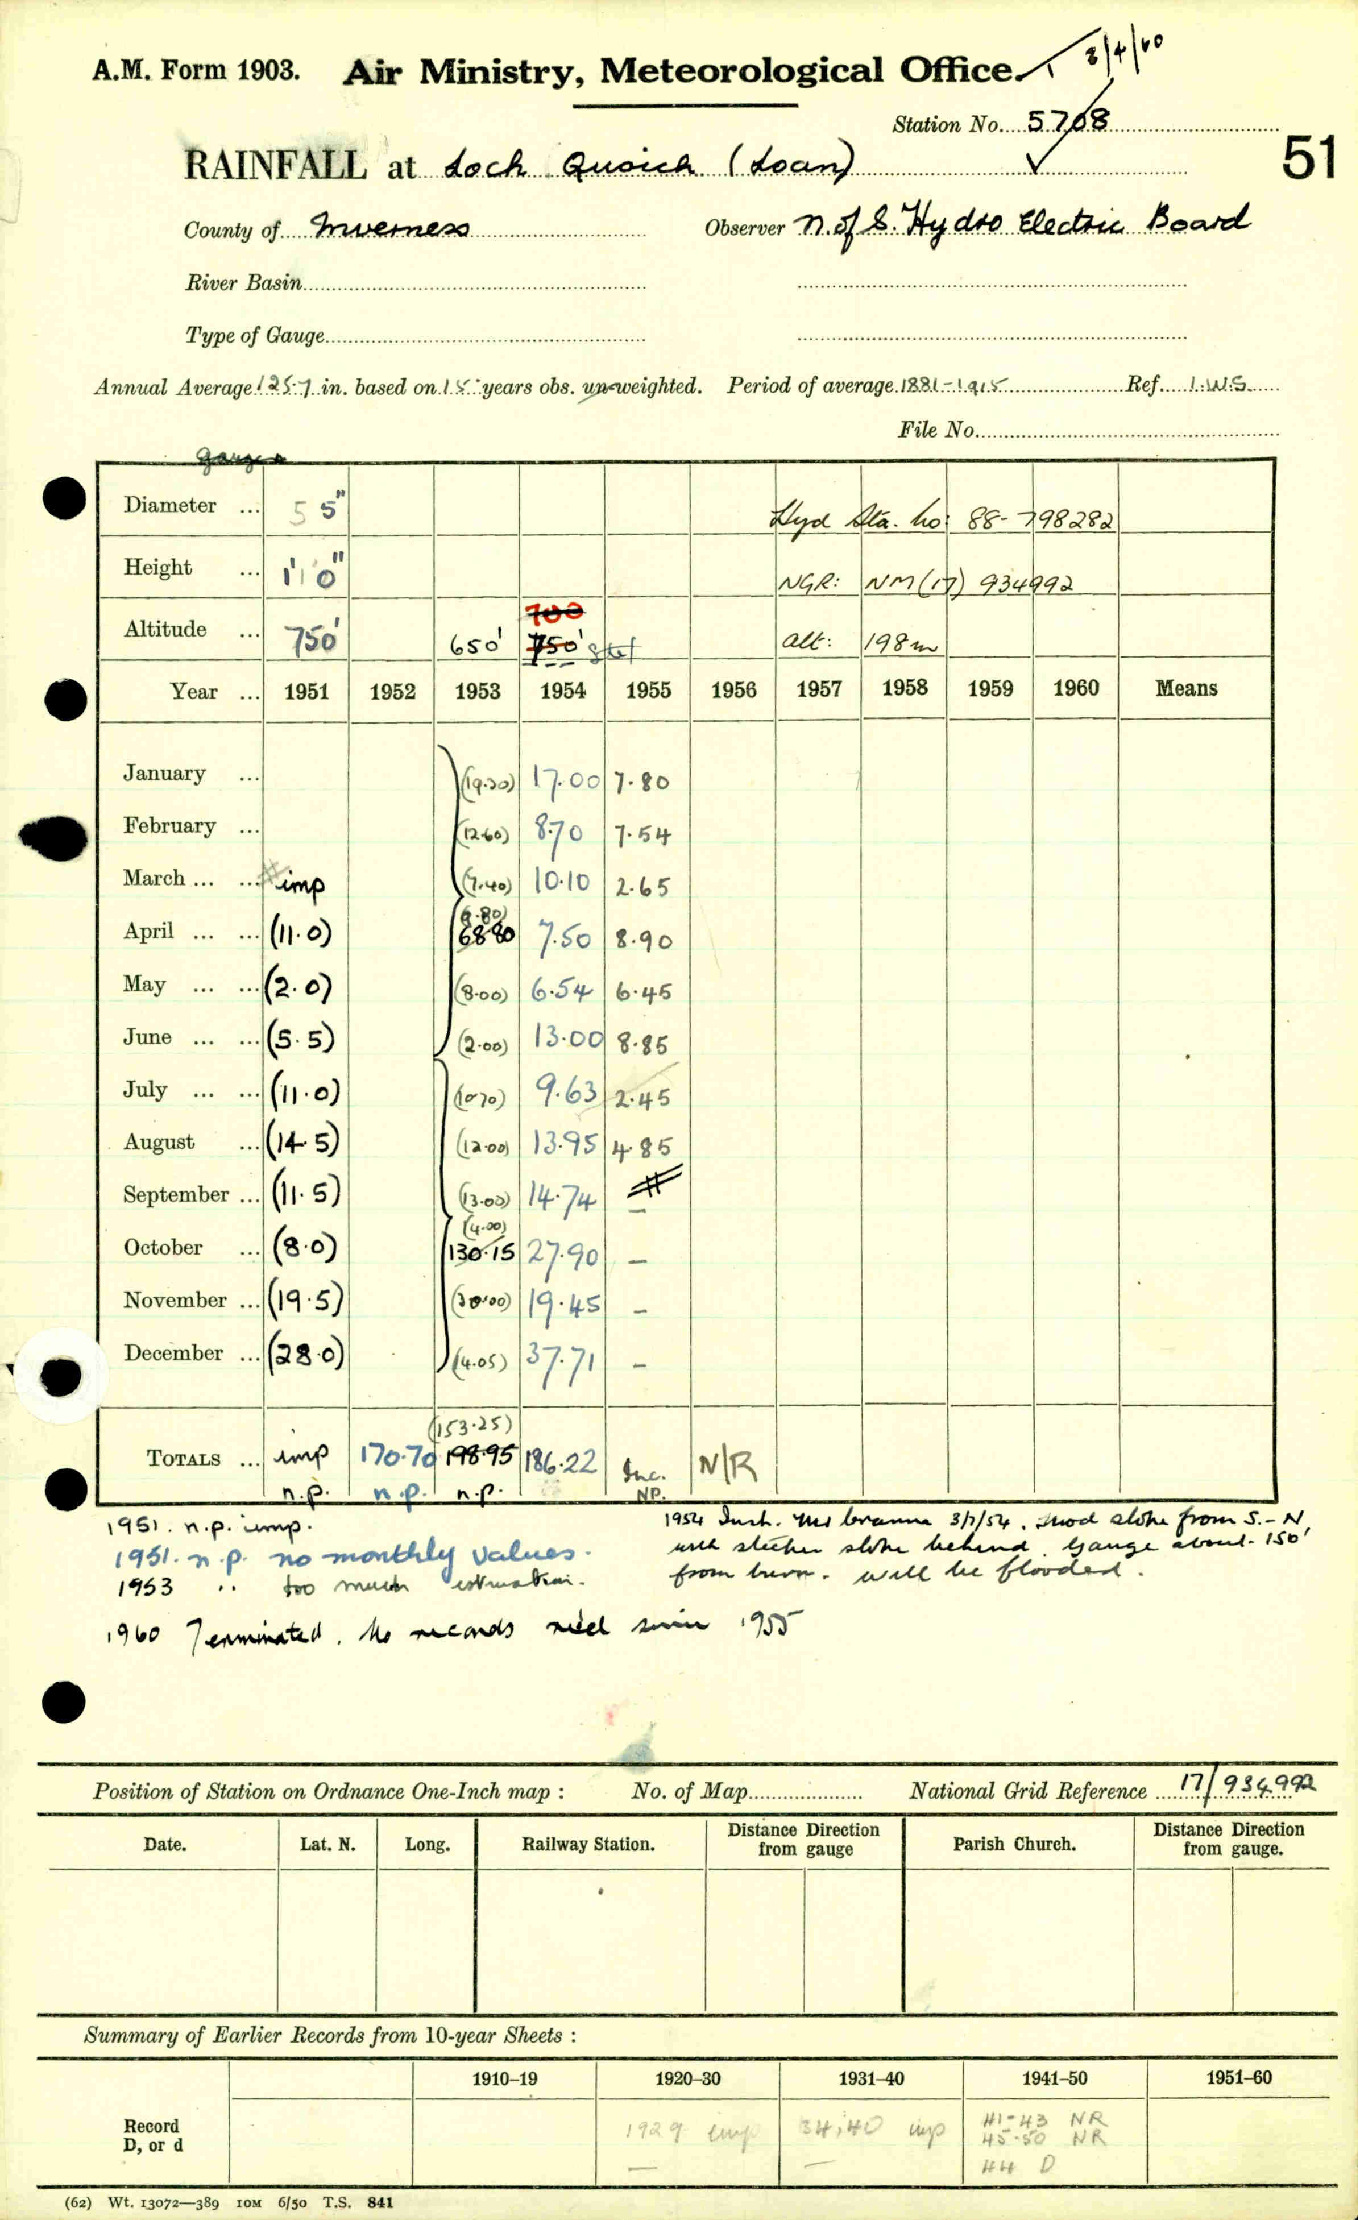 A.M. Form 1903. Air Ministry, Meteorological Office. 8/4/60
Station No. 5708
51
RAINFALL at Loch Quoich (Loan)
County of Inverness Observer N. of S. Hydro Electric Board
River Basin
Type of Gauge
Annual Average 125.7 in. based on 15 years obs. un-weighted. Period of average 1881-1915 Ref. I.W.S.
File No.
Gauge
Diameter ... 5 5" Hyd Sta. no: 88-798282
Height ... 1' 0" NGR: NM(17) 934992
700
Altitude ... 750' 650' 750' Stet alt: 198m
Year ... 1951 1952 1953 1954 1955 1956 1957 1958 1959 1960 Means
January ... (19.30) 17.00 7.80
February ... (12.60) 8.70 7.54
March ... ... imp (7.40) 10.10 2.65
(6.80)
April ... ... (11.0) 68.80 7.50 8.90
May ... ... (2.0) (8.00) 6.54 6.45
June ... ... (5.5) (2.00) 13.00 8.85
July ... ... (11.0) (10.70) 9.63 2.45
August ... (14.5) (12.00) 13.95 4.85
September ... (11.5) (13.00) 14.74 –
(4.00)
October ... (8.0) 130.15 27.90 –
November ... (19.5) (30.00) 19.45 –
December ... (28.0) (4.05) 37.71 –
(153.25)
TOTALS ... imp 170.70 198.95 186.22 Inc. N/R
n.p. n.p. n.p. NP.
1951. n.p. imp.
1951. n.p. no monthly values.
1953 " too much estimation.
1954 Insh. 3/7/54. Mod slope from S.-N,
with steeper slope behind. Gauge about 150'
from burn. Will be flooded.
1960 Terminated. No records rec'd since 1955
Position of Station on Ordnance One-Inch map : No. of Map National Grid Reference 17/934992
Date. Lat. N. Long. Railway Station. Distance Direction from gauge Parish Church. Distance Direction from gauge.
Summary of Earlier Records from 10-year Sheets :
1910–19 1920–30 1931–40 1941–50 1951–60
Record
D, or d
1929 imp
—
34,40 imp
—
41-43 NR
45-50 NR
44 D
(62) Wt. 13072—389 10M 6/50 T.S. 841